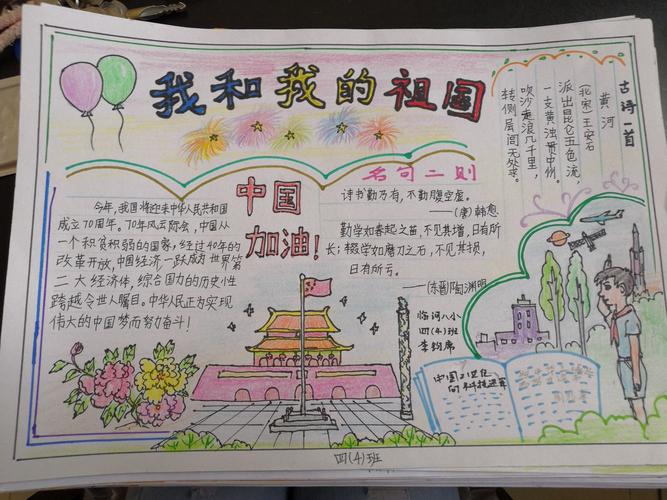 我和我的祖国
古诗一首
黄河
(北宋)王安石
派出昆仑五色流,
一支黄浊贯中州。
吹沙走浪几千里,
转侧屋间无处求。
今年,我国将迎来中华人民共和国
成立70周年。70年风云际会,中国从
一个积贫积弱的国家,经过40年的
改革开放,中国经济一跃成为世界第
二大经济体,综合国力的历史性
跨越令世人瞩目。中华人民正为实现
伟大的中国梦而努力奋斗!
中国
加油!
名句二则
诗书勤乃有,不勤腹空虚。
——(唐)韩愈
勤学如春起之苗,不见其增,日有所
长;辍学如磨刀之石,不见其损,
日有所亏。
——(东晋)陶渊明
临河八小
四(4)班
中国21世纪
的科技进军
四(4)班